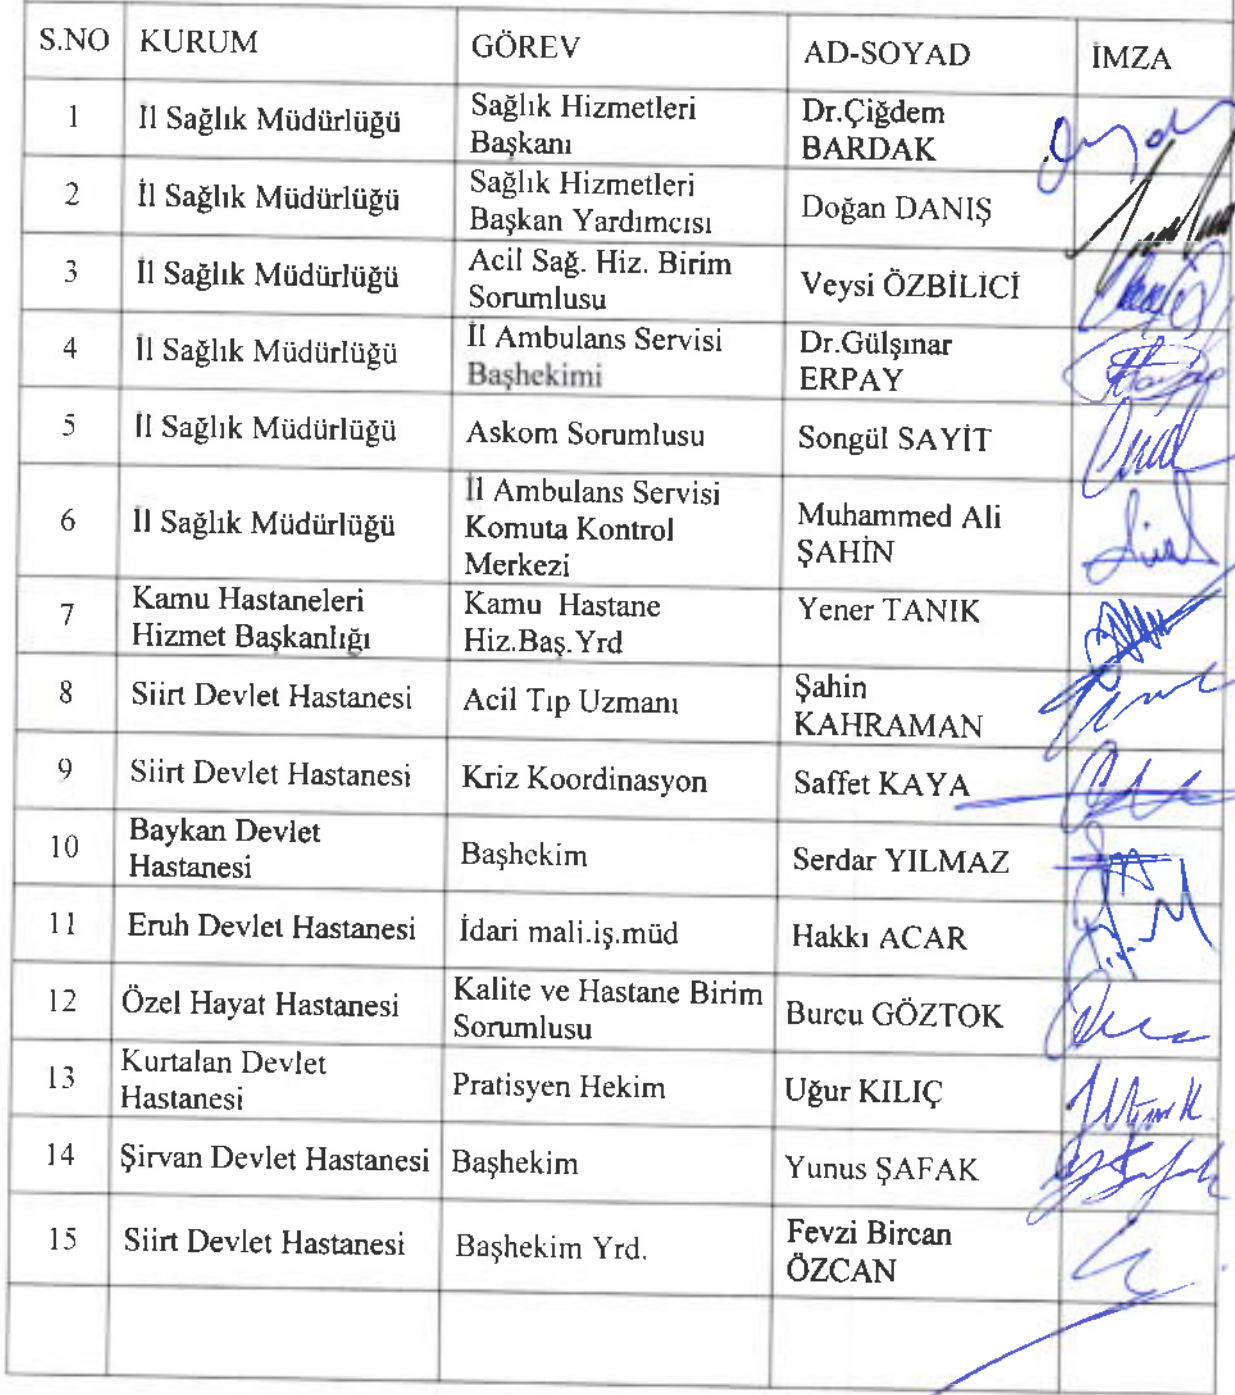 S.NO KURUM GÖREV AD-SOYAD İMZA
1 İl Sağlık Müdürlüğü Sağlık Hizmetleri Başkanı Dr.Çiğdem BARDAK
2 İl Sağlık Müdürlüğü Sağlık Hizmetleri Başkan Yardımcısı Doğan DANIŞ
3 İl Sağlık Müdürlüğü Acil Sağ. Hiz. Birim Sorumlusu Veysi ÖZBİLİCİ
4 İl Sağlık Müdürlüğü İl Ambulans Servisi Başhekimi Dr.Gülşınar ERPAY
5 İl Sağlık Müdürlüğü Askom Sorumlusu Songül SAYİT
6 İl Sağlık Müdürlüğü İl Ambulans Servisi Komuta Kontrol Merkezi Muhammed Ali ŞAHİN
7 Kamu Hastaneleri Hizmet Başkanlığı Kamu Hastane Hiz.Baş.Yrd Yener TANIK
8 Siirt Devlet Hastanesi Acil Tıp Uzmanı Şahin KAHRAMAN
9 Siirt Devlet Hastanesi Kriz Koordinasyon Saffet KAYA
10 Baykan Devlet Hastanesi Başhekim Serdar YILMAZ
11 Eruh Devlet Hastanesi İdari mali.iş.müd Hakkı ACAR
12 Özel Hayat Hastanesi Kalite ve Hastane Birim Sorumlusu Burcu GÖZTOK
13 Kurtalan Devlet Hastanesi Pratisyen Hekim Uğur KILIÇ
14 Şirvan Devlet Hastanesi Başhekim Yunus ŞAFAK
15 Siirt Devlet Hastanesi Başhekim Yrd. Fevzi Bircan ÖZCAN